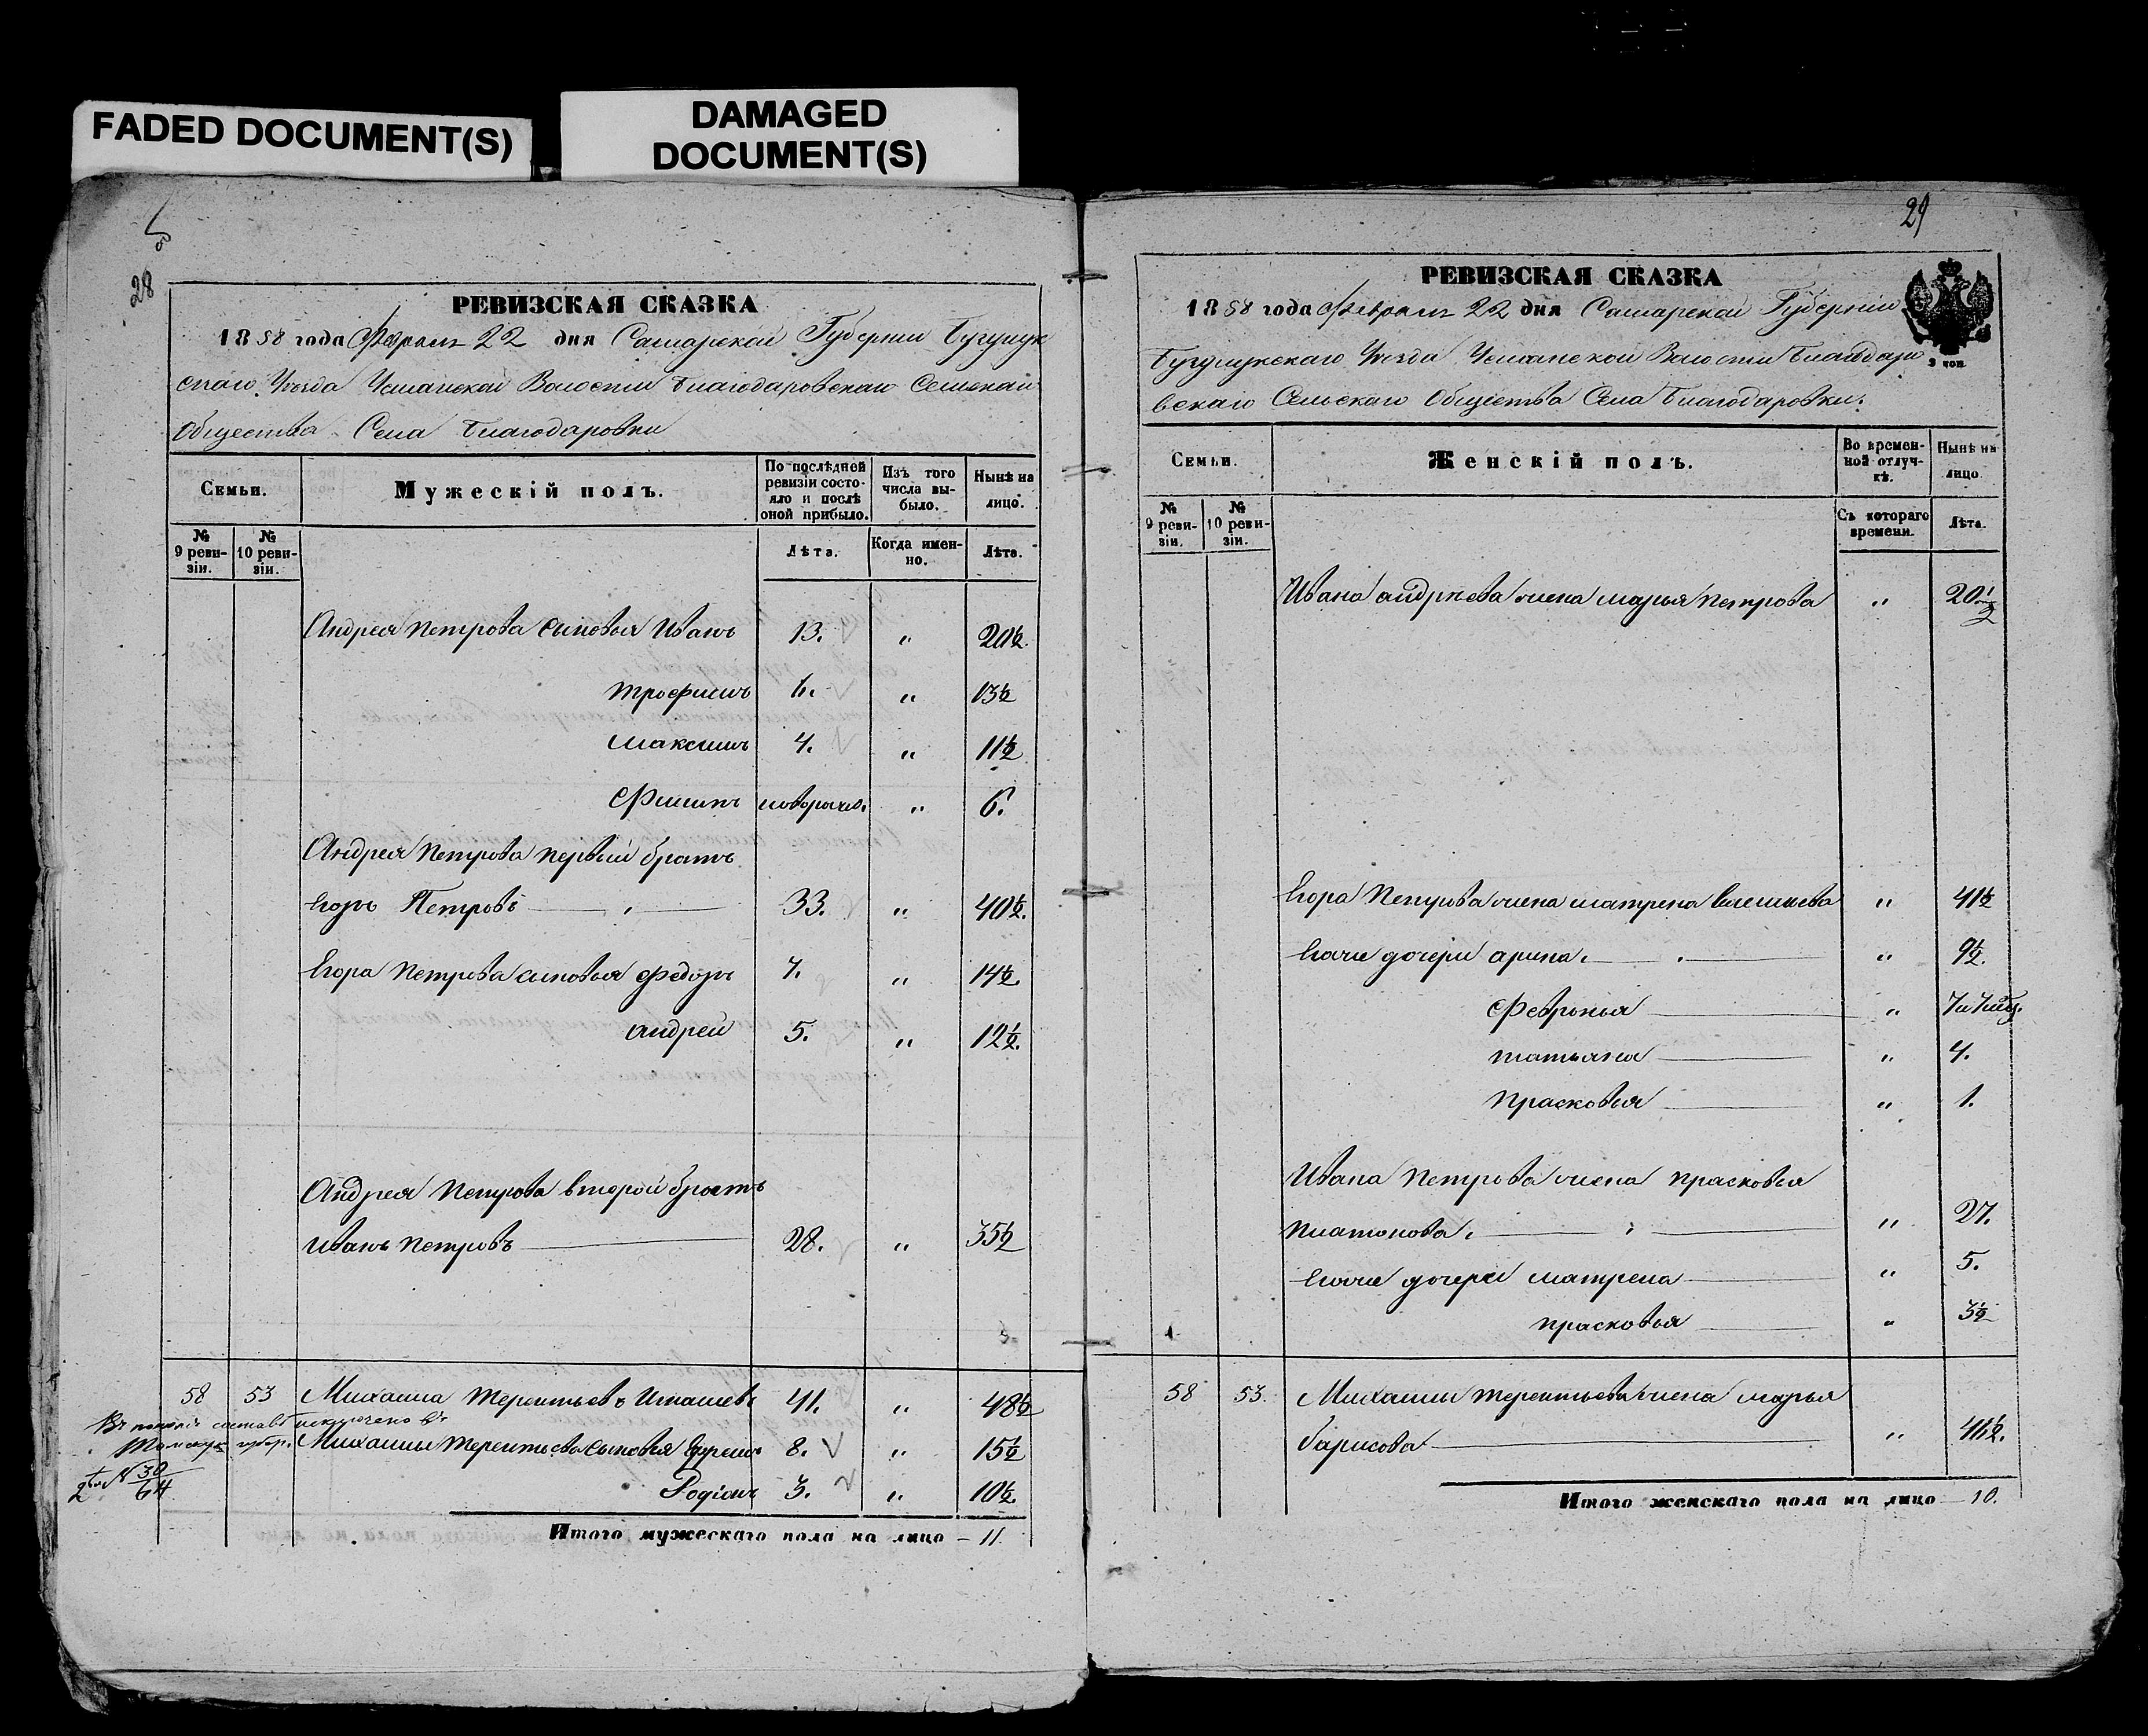 FADED DOCUMENT(S)
DAMAGED
DOCUMENT(S)
28
РЕВИЗСКАЯ СКАЗКА
1858 года Февраля 22 дня Самарской Губернии Бугурук
скаго Уезда Усманской Волости Благодаровскаго Сельскаго
Общества Села Благодаровки
Семьи.
Мужескій полъ.
По послѣдней
ревизіи состо-
яло и послѣ
оной прибыло.
Изъ того
числа вы-
было.
Нынѣ на
лицо.
№
9 реви-
зіи.
№
10 реви-
зіи.
Лѣта.
Когда имен-
но.
Лѣта.
Андрея Петрова сыновья Иванъ 13. " 20½
Трофимъ 6. " 13½
Максимъ 4. " 11½
Филипъ новорожд. " 6.
Андрея Петрова первый братъ
Егоръ Петровъ 33. " 40½.
Егора Петрова сыновья Федоръ 7. " 14½.
Андрей 5. " 12½.
Андрея Петрова второй братъ
Иванъ Петровъ 28. " 35½
58 53 Михаила Терентьевъ 41. " 48½
Михаилы Терентьева сыновья Ефремъ 8. " 15½
Родіонъ 3. " 10½.
30
64
Итого мужескаго пола на лицо – 11.
29
РЕВИЗСКАЯ СКАЗКА
1858 года Февраля 22 дня Самарской Губерніи
Бугурускаго Уезда Усманской Волости Благодаро
вскаго Сельскаго Общества Села Благодаровки.
3 коп.
Семьи.
Женскій полъ.
Во времен-
ной отлуч-
кѣ.
Нынѣ на
лицо
№
9 реви-
зіи.
№
10 реви-
зіи.
Съ котораго
времени.
Лѣта.
Ивана Андреева жена Марья Петрова " 20½
Егора Петрова жена Матрена " 41½
Егоже дочери Арина. " 9½.
Февронья " 7 и 7 мѣс.
Татьяна " 4.
Прасковья " 1.
Ивана Петрова жена Прасковья
Платонова. " 27.
Егоже дочери Матрена " 5.
Прасковья " 3½
58 53. Михаилы Терентьева жена Марья
Барисова " 41½.
Итого женскаго пола на лицо – 10.